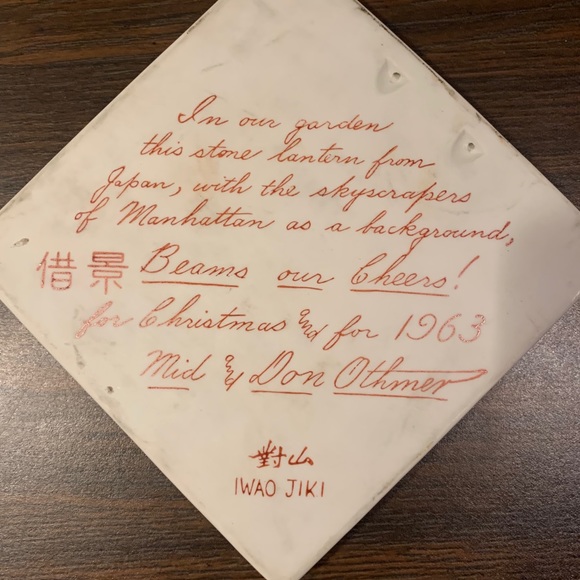 In our garden
this stone lantern from
Japan, with the skyscrapers
of Manhattan as a background,
借景 Beams our Cheers!
for Christmas and for 1963
Mid and Don Othmer
對山
IWAO JIKI